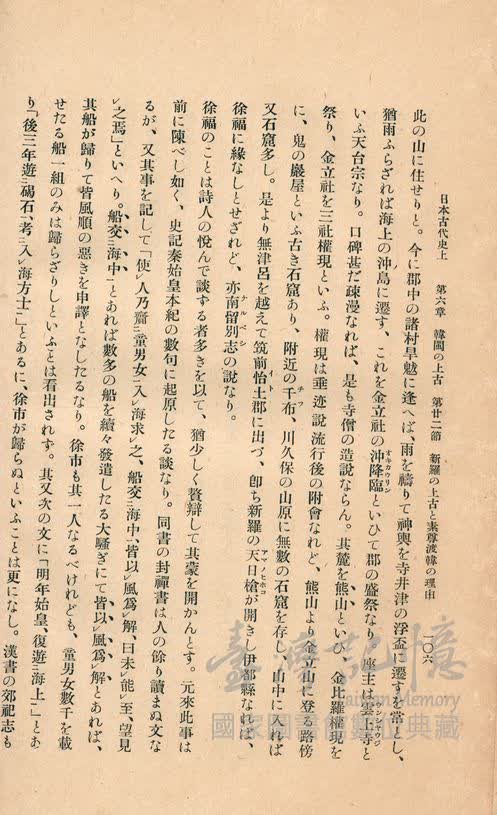 日本古代史上　第六章　韓國の上古　第廿二節　新羅の上古と素尊渡韓の理由　一〇六
此の山に住せりと。今に郡中の諸村旱魃に逢へば、雨を禱りて神輿を寺井津の浮盃に遷すを常とし、
猶雨ふらざれば海上の沖島に遷す、これを金立社の沖降臨といひて郡の盛祭なり。座主は雲上寺と
オキカウリン
ウンジヤウジ
いふ天台宗なり。口碑甚だ疎漫なれば、是も寺僧の造説ならん。其麓を熊山といひ、金比羅權現を
祭り、金立社を三社權現といふ。權現は垂迹說流行後の附會なれど、熊山より金立山に登る路傍
に、鬼の巖屋といふ古き石窟あり、附近の千布、川久保の山原に無數の石窟を存し、山中に入れば
チフ
又石窟多し。是より無津呂を越えて筑前怡土郡に出づ、卽ち新羅の天日槍が開きし伊都縣なれば、
イト
アマノヒホコ
徐福に緣なしとせざれど、亦南留別志の說なり。
ナルベシ
徐福のことは詩人の悅んで談する者多きを以て、猶少しく贅辯して其蒙を開かんとす。元來此事は
前に陳べし如く、史記秦始皇本紀の數句に起原したる談なり。同書の封禪書は人の餘り讀まぬ文な
るが、又其事を記して「使㆑人乃齎㆓童男女㆒入㆑海求㆑之、船交㆓海中㆒、皆以㆑風爲㆑解、曰未㆑能㆑至、望見
㆑之焉」といへり。船交㆓海中㆒とあれば數多の船を續々發遣したる大騷ぎにて皆以㆑風爲㆑解とあれば、
其船が歸りて皆風順の惡きを申譯となしたるなり。徐市も其一人なるべけれども、童男女數千を載
せたる船一組のみは歸らざりしといふとは看出されず。其又次の文に「明年始皇、復遊㆓海上㆒」とあ
り「後三年遊㆓碣石㆒、考㆘入㆑海方士㆖」とあるに、徐市が歸らぬといふことは更になし。漢書の郊祀志も
臺灣記憶
Taiwan Memory
國家圖書館數位典藏